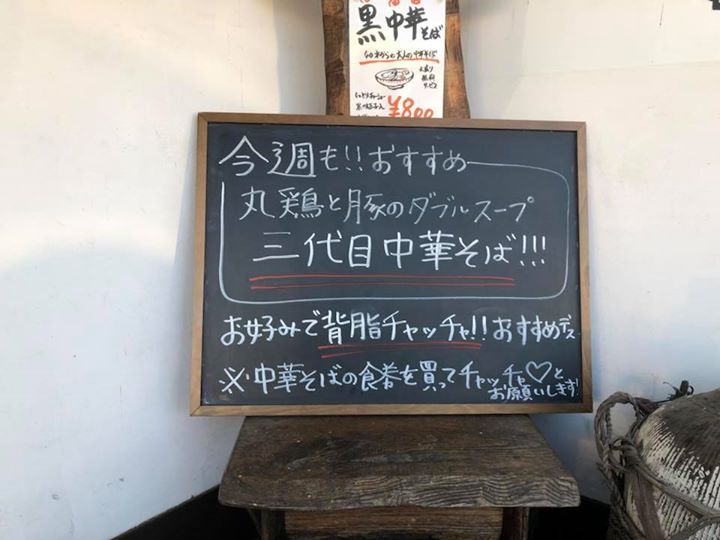 黒中華そば
大盛り
無料
サービス
¥800
今週も!!おすすめ
丸鶏と豚のダブルスープ
三代目中華そば!!!
お好みで背脂チャッチャ!!おすすめデス
※中華そばの食券を買ってチャッチャ♡と
お願いします!